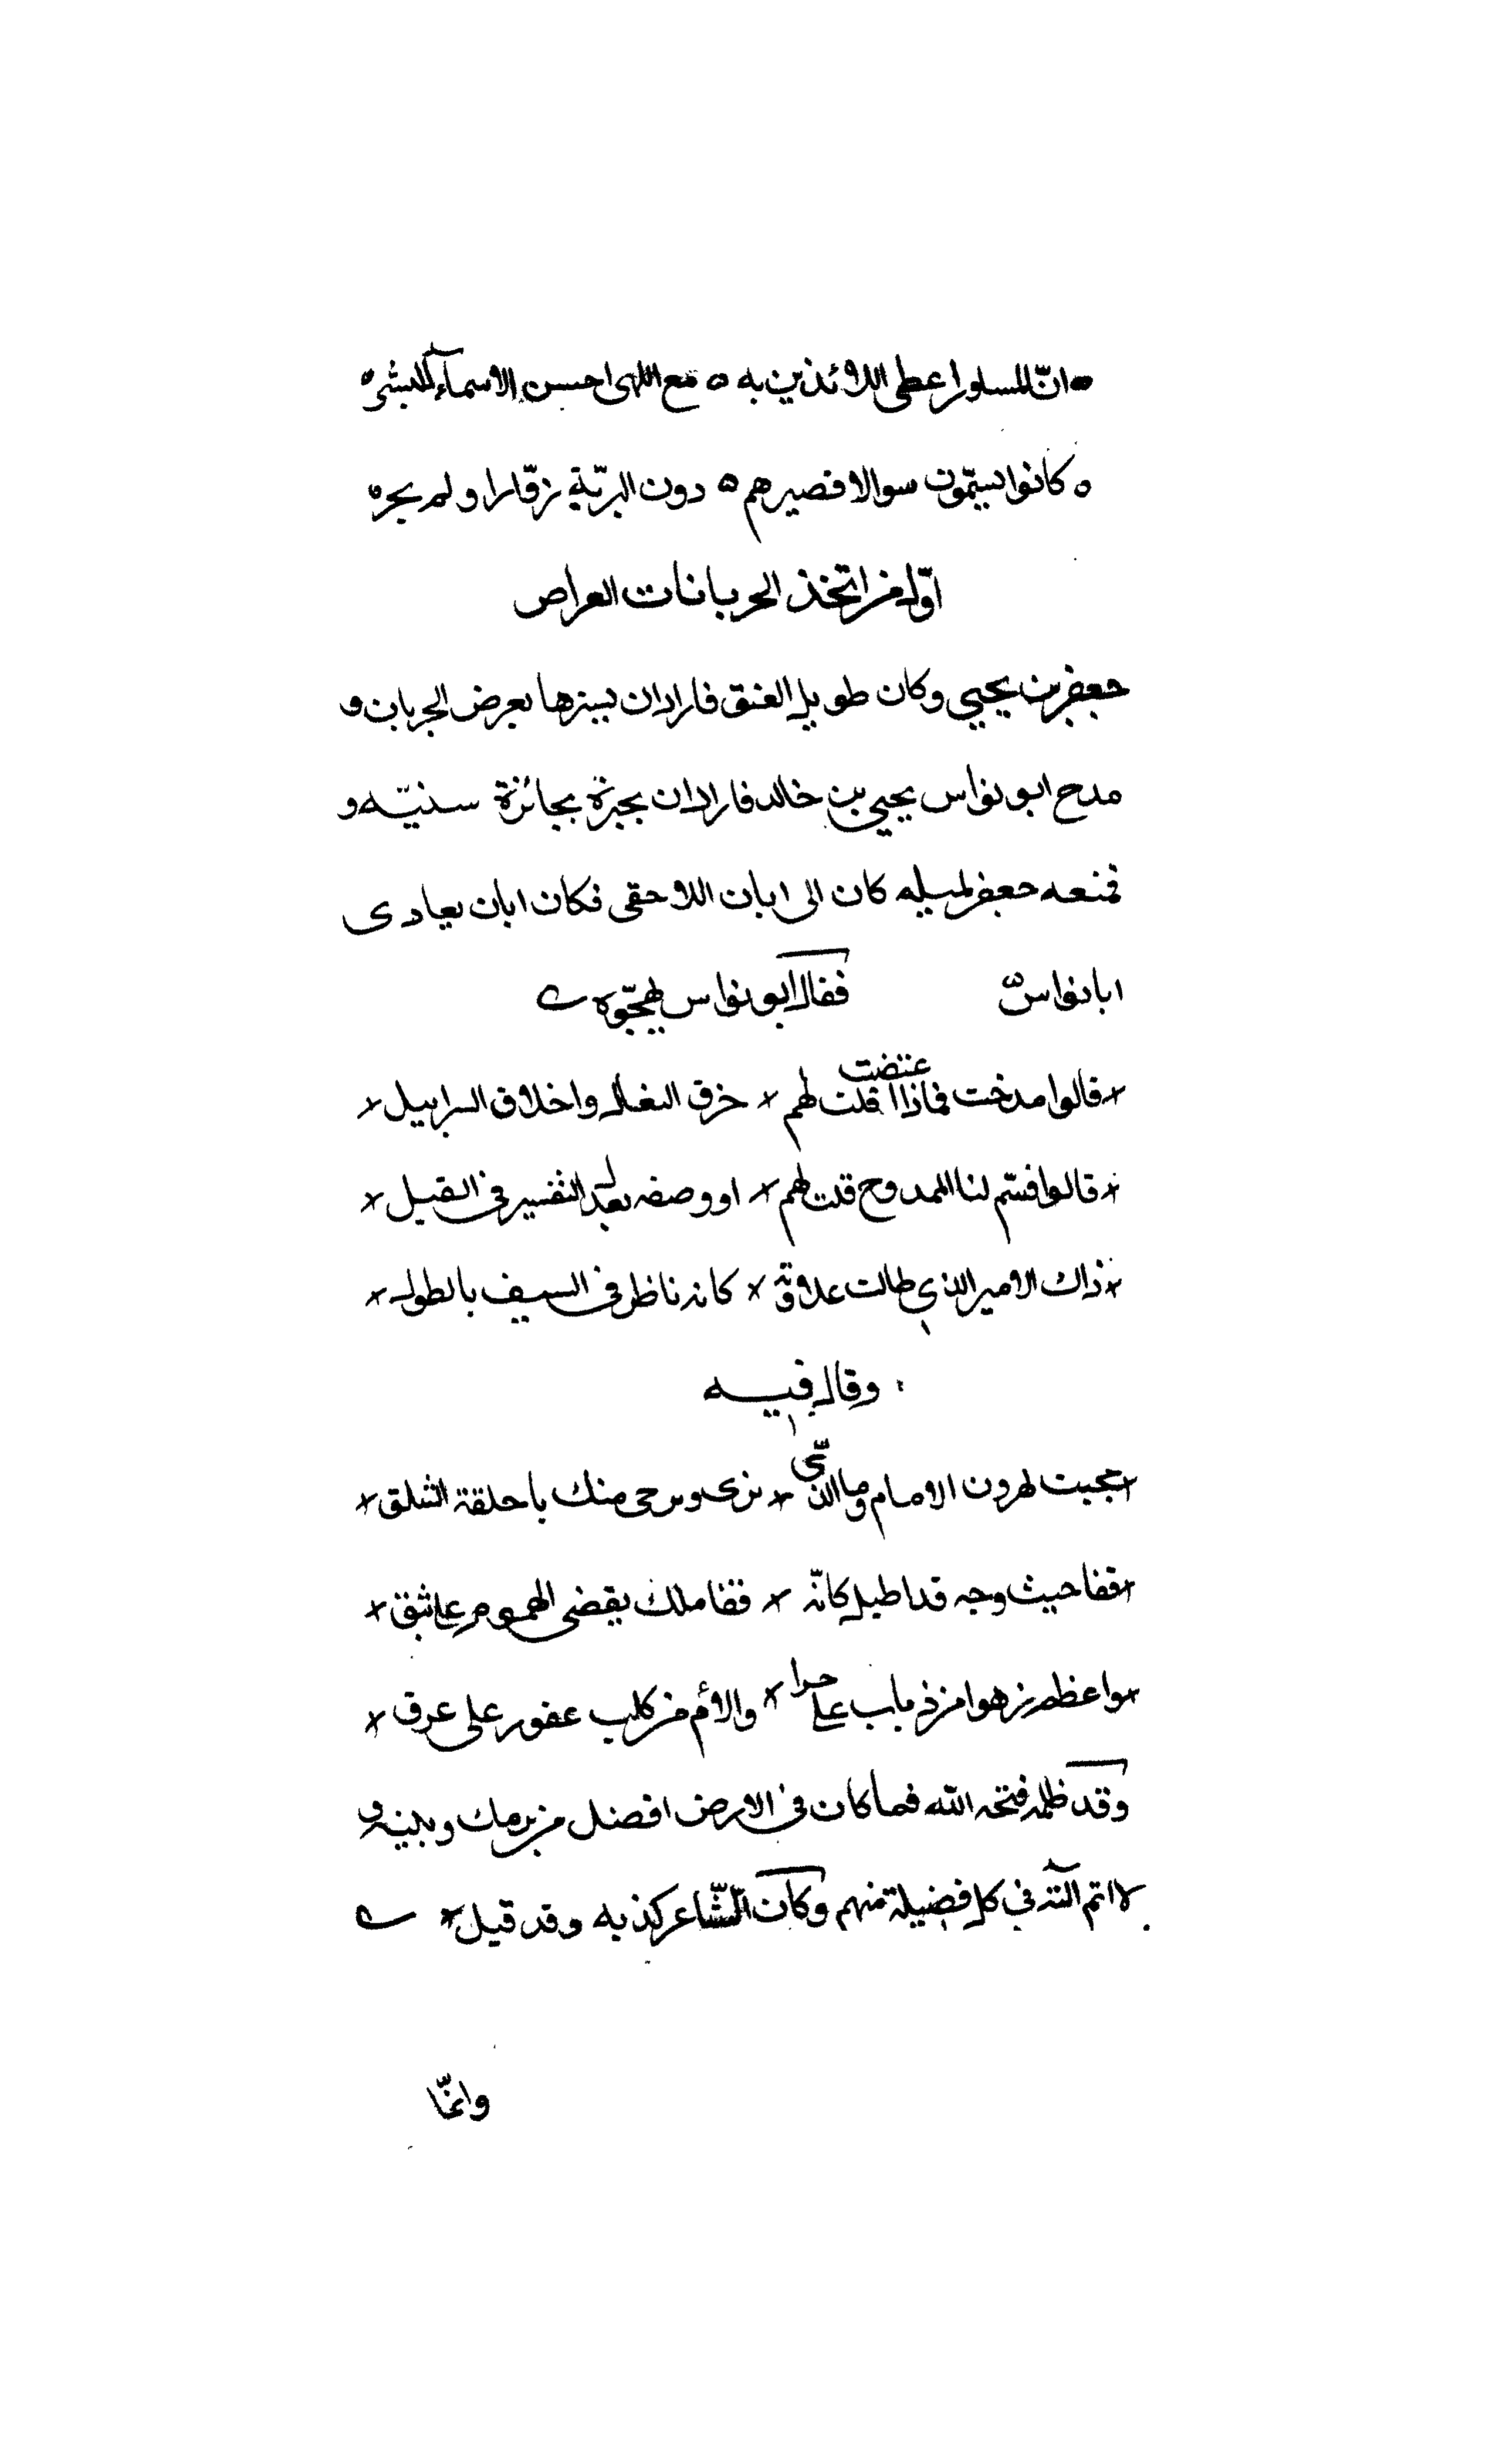 ه انّ المساور اعطى اللائذين به ه مع اللهى احسن الاسماء للبشر ه
ه كانوا يسمّون سوالا فصيرهم ه دون البريّة زوّارا ولم يجره
اوّل من اتخذ الجربانات العراض
جعفر بن يحيي وكان طويل العنق فاراد ان يسترها بعرض الجربان و
مدح ابو نواس يحيي بن خالد فاراد ان يجيزه بجائزة سنيّه و
فمنعه جعفر لميله كان الى ابان اللاحقى فكان ابان يعادى
ابا نواس فقال ابو نواس يهجوه
× قالوا مدحت فماذا اعتضت قلت لهم × خرق النعال واخلاق السرابيل ×
× قالوا فسّم لنا الممدوح قلت لهم × او وصفه يعدل التفسير في القيل ×
× ذاك الامير الذي طالت علاوته × كانه ناظر في السيف بالطول ×
وقال فيه
× عجبت لهرون الامام وما الذّى × يرى ويرجى منك يا حلقة السلق ×
× قفا حيث وجه قد اطيل كانّه × قفا ملك يقضى الهموم على ثبق ×
× واعظم زهوا من ذباب على خرا × والأم من كلب عقور على عرق ×
وقد ظلمه قبحه الله فما كان في الارض افضل من برمك وبنيه و
لا اتم آلته في كل فضيلة منهم وكان الشّاعر كذبه وقد قيل ×
وانمّا